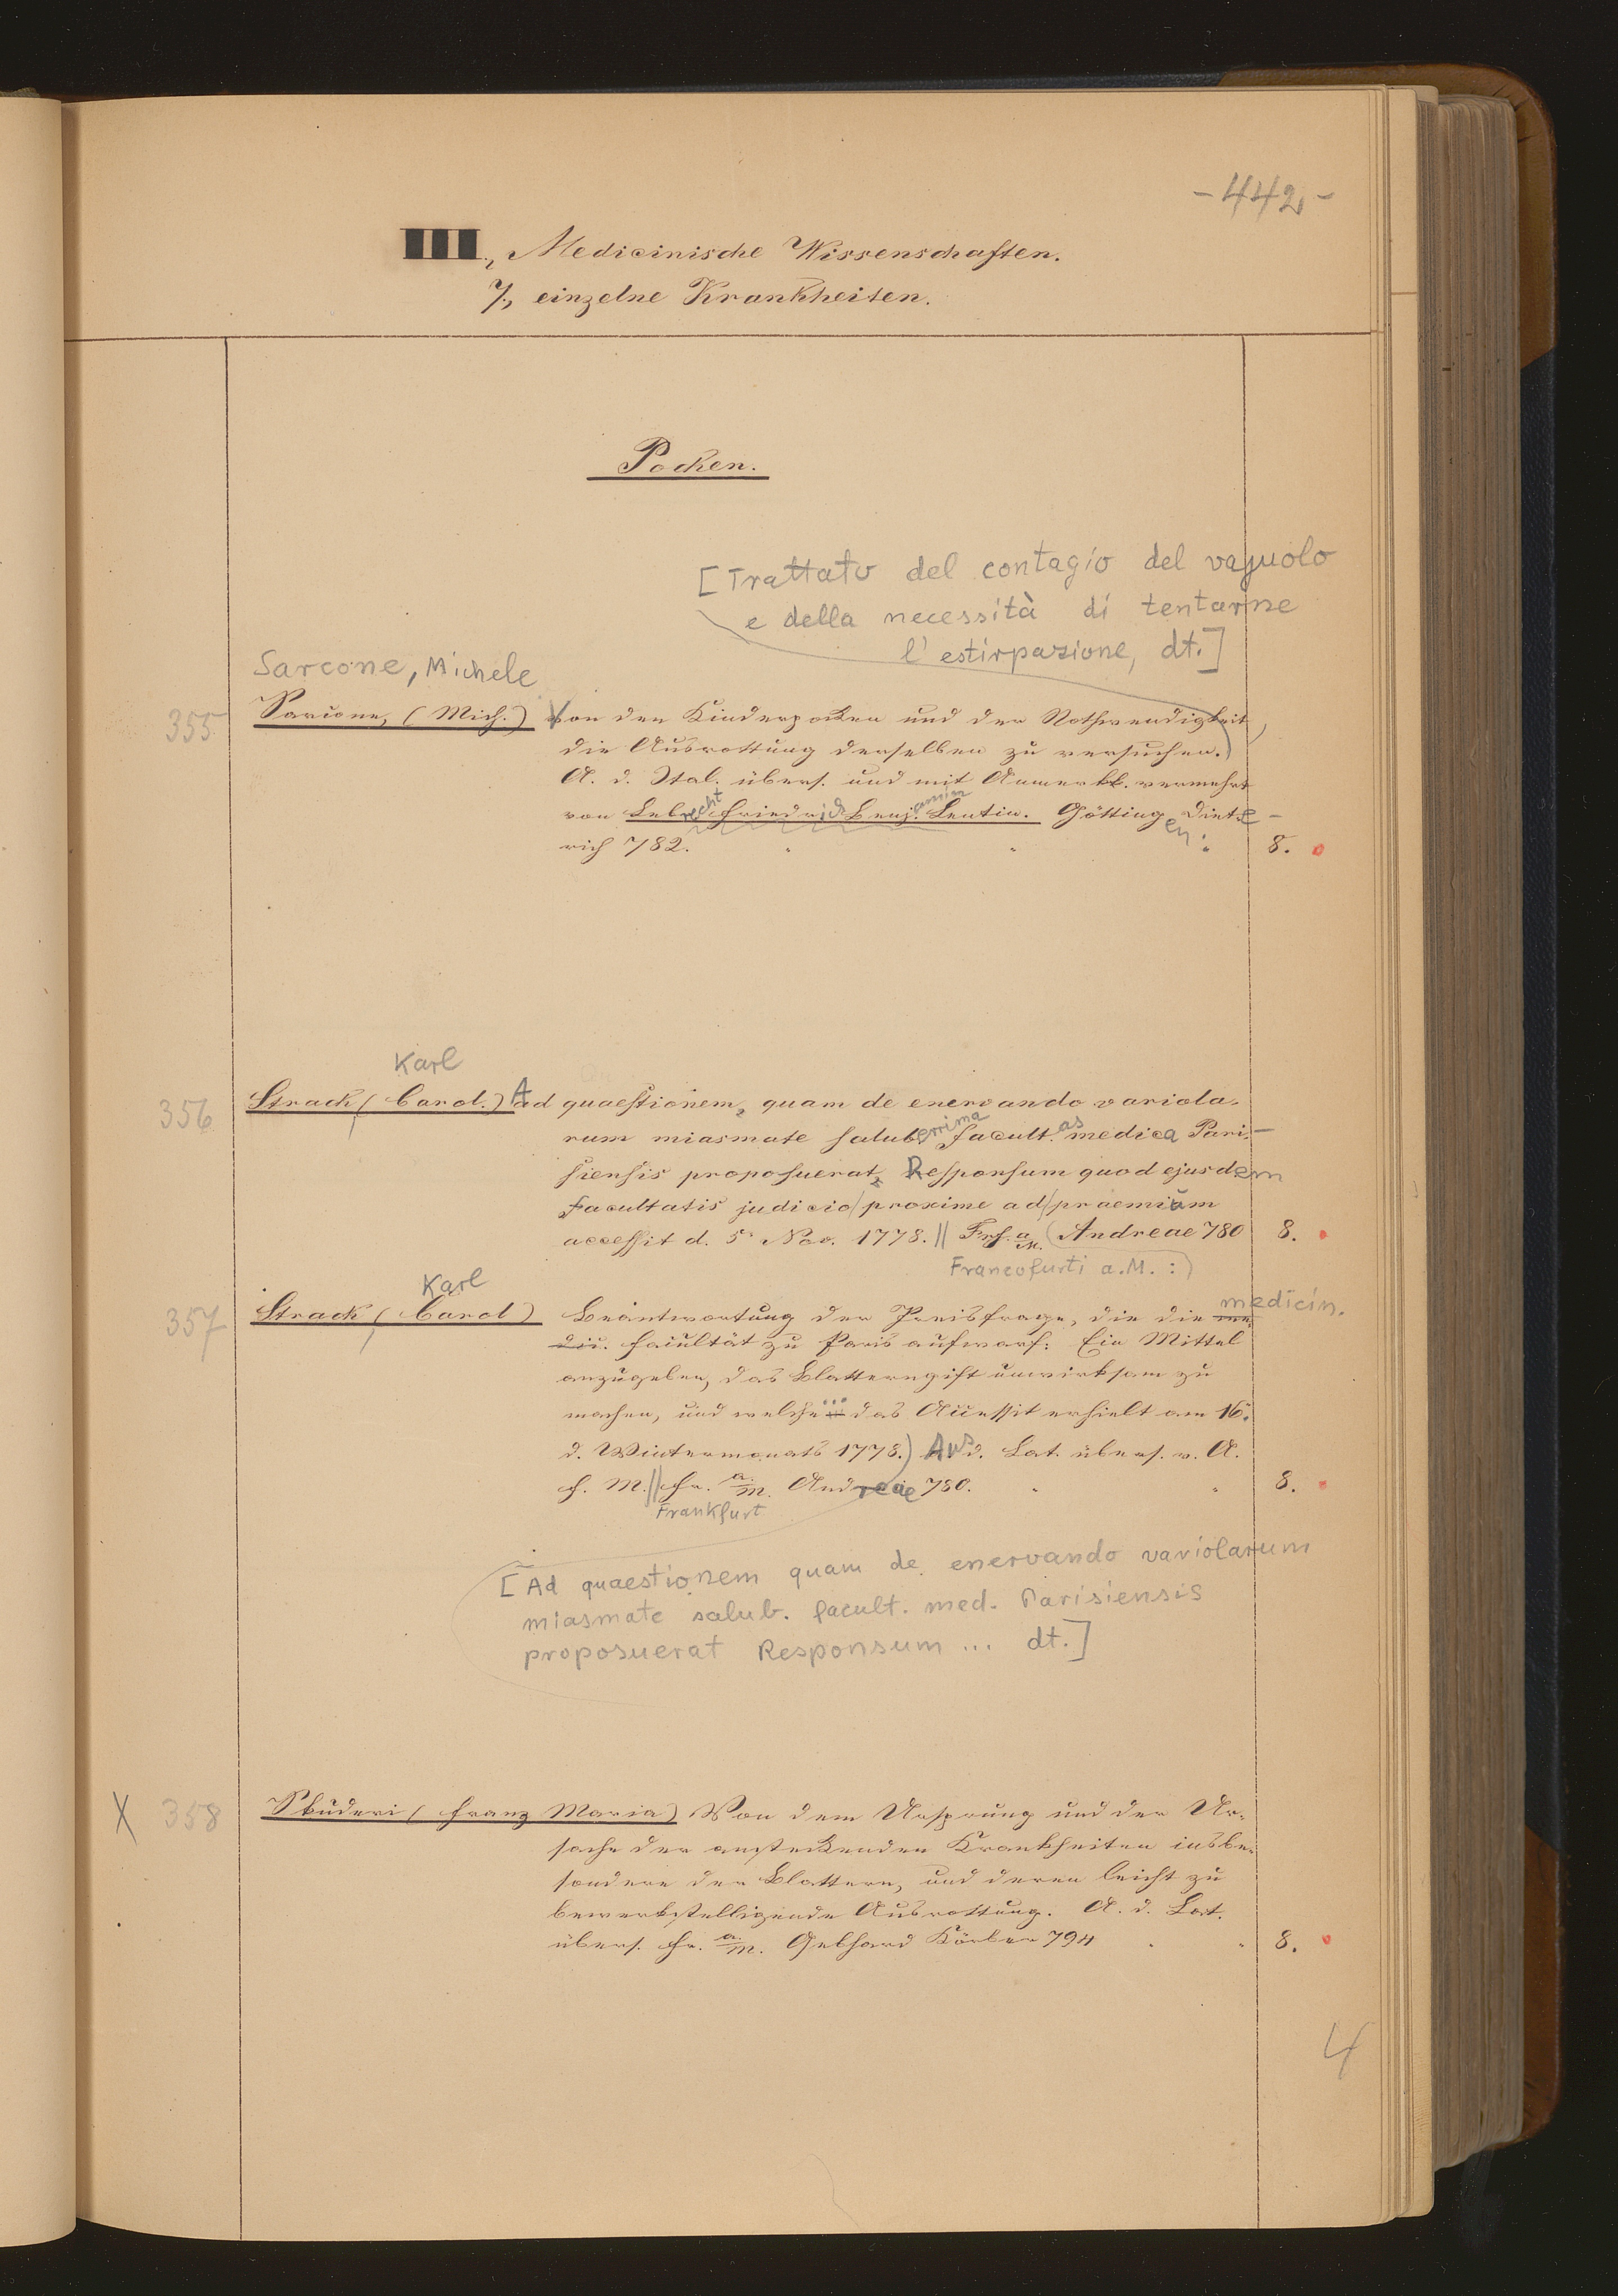 -442-
III., Medicinische Wissenschaften.
7., einzelne Krankheiten.
Pocken.
[Trattato del contagio del vajuolo
e della necessità di tentarne
l'estirpazione, dt.]
Sarcone, Michele
355 Sarcone, (Mich.) Von den Kinderpocken und der Nothwendigkeit,
die Ausrottung derselben zu versuchen.)
A. d. Ital. übers. und mit Anmerkk. vermehrt
von Lebrecht Friedrich Benjamin Lentin. Göttingen Diete-
rich 782. 8.
Karl
356 Strack (Carol.) Ad quaestionem, quam de enervando variola-
rum miasmate saluberrima facultas medica Pari-
siensis proposuerat, Responsum quod ejusdem
facultatis judicio proxime ad praemium
accessit d. 5. Nov. 1778. || Frf. a/M. (Andreae 780 8.
Francofurti a.M. :)
Karl
357 Strack (Carol) Beantwortung der Preisfrage, die die me medicin.
dic. Facultät zu Paris aufwarf: Ein Mittel
anzugeben, das Blatterngift unwirksam zu
machen, und welche ... das Accessit erhielt am 16.
d. Wintermonats 1778.) Aus d. Lat. übers. v. A.
F. M. || Fr. a/M. Andreae 780. 8.
Frankfurt
[Ad quaestionem quam de enervando variolarum
miasmate salub. facult. med. Parisiensis
proposuerat Responsum ... dt.]
X 358 Skuderi (Franz Maria) Von dem Ursprung und der Ur-
sache der ansteckenden Krankheiten insbe-
sondere der Blattern, und deren leicht zu
bewerkstelligende Ausrottung. A. d. Lat.
übers. Fr. a/M. Gebhard Körber 794 8.
4